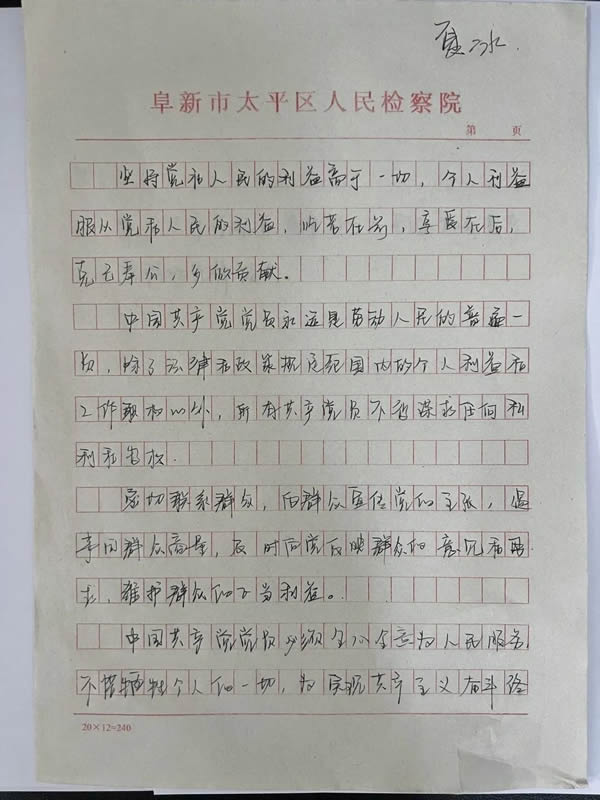 夏冰
阜新市太平区人民检察院
第 页
坚持党和人民的利益高于一切，个人利益
服从党和人民的利益，吃苦在前，享受在后，
克己奉公，多做贡献。
中国共产党党员永远是劳动人民的普通一
员，除了法律和政策规定范围内的个人利益和
工作职权以外，所有共产党员不得谋求任何私
利和特权.
密切联系群众，向群众宣传党的主张，遇
事同群众商量，及时向党反映群众的意见和要
求，维护群众的正当利益。
中国共产党党员必须全心全意为人民服务，
不惜牺牲个人的一切，为实现共产主义奋斗终
20×12=240